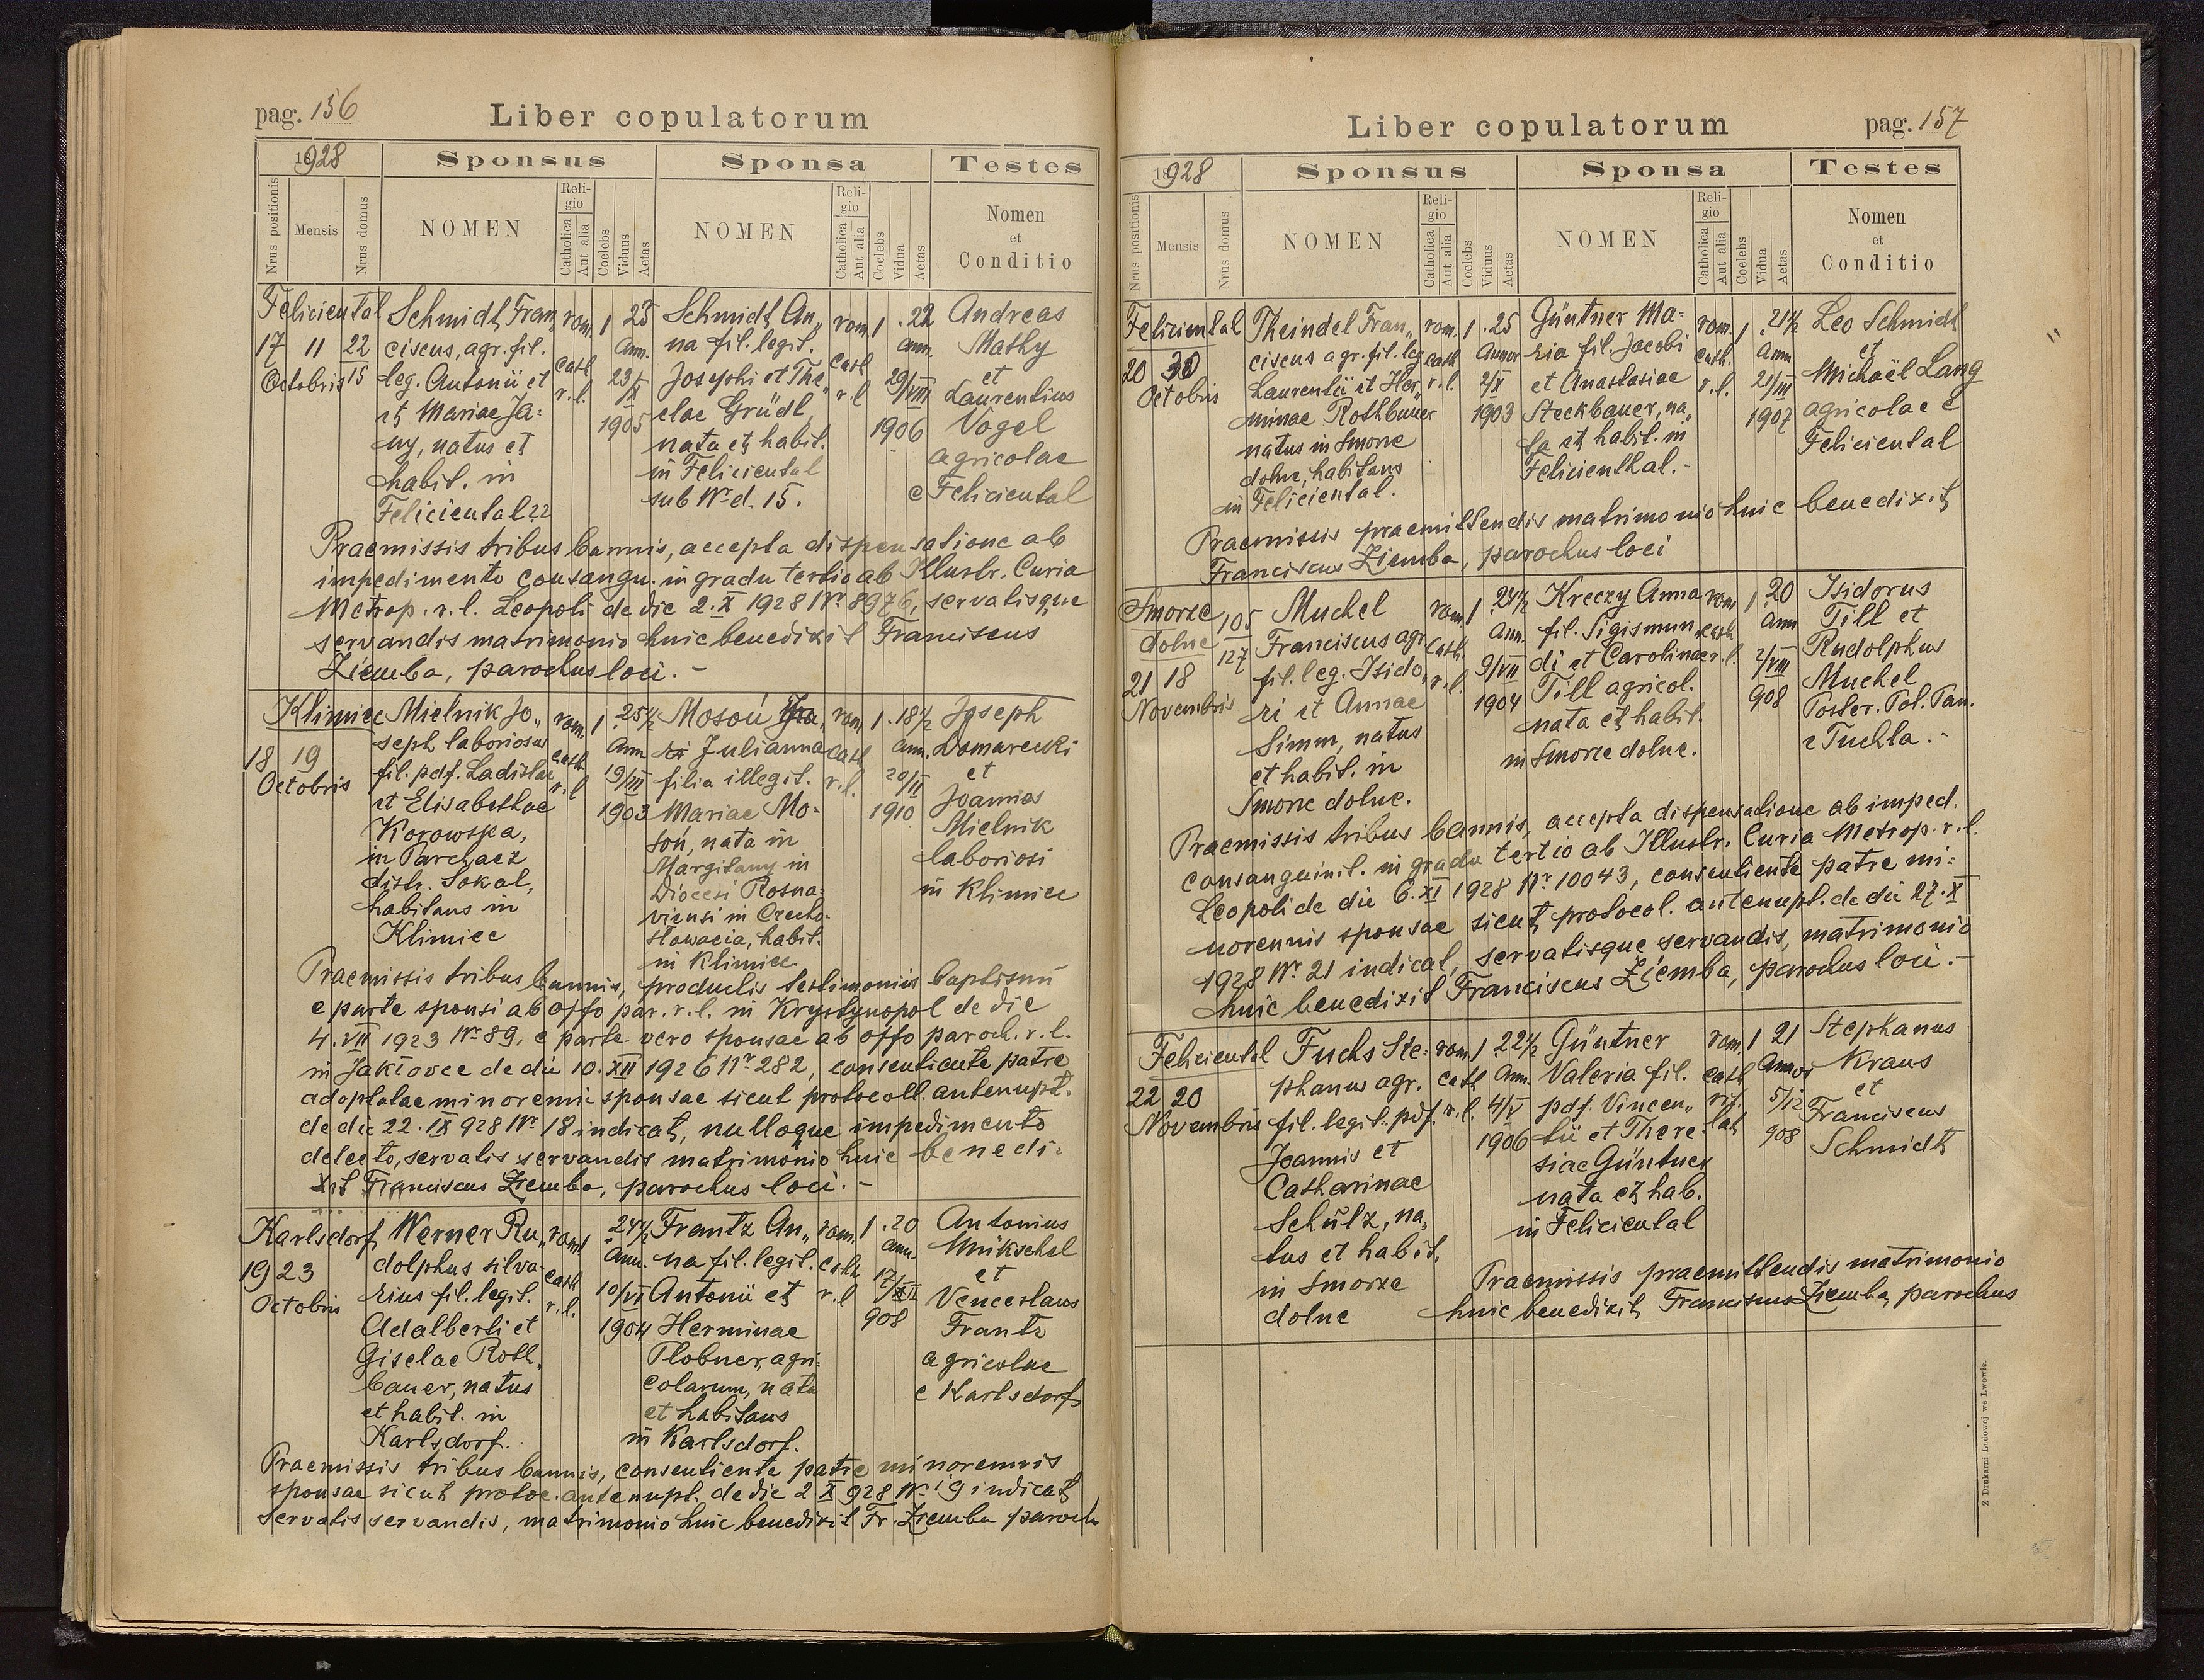 pag. 156
Liber copulatorum
1928
Sponsus
Sponsa
Testes
Nrus positionis
Mensis
Nrus domus
NOMEN
Religio
Catholica
Aut alia
Coelebs
Viduus
Aetas
NOMEN
Religio
Catholica
Aut alia
Coelebs
Vidua
Aetas
Nomen
et
Conditio
Feliciental
17 11 22
Octobris 15
Schmidt Fran„
ciscus, agr. fil.
leg. Antonii et
et Mariae Ja=
ny, natus et
habit. in
Feliciental 22
rom.
cath
r. l.
1
23
Ann.
23/IX
1905
Schmidt An„
na fil. legit.
Josephi et The„
clae Grüdl,
nata et habit.
in Feliciental
sub Nr d. 15.
rom
cath
r. l
1
22
ann.
29/VIII
1906
Andreas
Mathy
et
Laurentius
Vogel
agricolae
e Feliciental
Praemissis tribus bannis, accepta dispensatione ab
impedimento consangu. in gradu tertio ab Illustr. Curia
Metrop. r. l. Leopoli de die 2. X 1928 Nr 8976, servatisque
servandis matrimonio huic benedixit Franciscus
Ziemba, parochus loci. –
Klimiec
18 19
Octobris
Mielnik Jo„
seph laboriosus
fil. pdf. Ladislai
et Elisabethae
Korowska,
in Parchacz
distr. Sokal,
habitans in
Klimiec
rom.
cath
r. l
1
25½
Ann
19/III
1903
Mosoń
Julianna
filia illegit.
Mariae Mo=
soń, nata in
Margitany in
Diocesi Rosna=
viensi in Czecho=
słowacia, habit.
in Klimiec.
rom
cath
r. l.
1
18½
ann.
20/II
1910
Joseph
Domarecki
et
Joannes
Mielnik
laboriosi
in Klimiec
Praemissis tribus bannis, productis testimoniis baptismi
e parte sponsi ab offo par. r. l. in Krystynopol de die
4. VII 1923 Nr 89, e parte vero sponsae ab offo paroch. r. l.
in Jakłovce de die 10. XII 1926 Nr 282, consentiente patre
adoptatae minorenis sponsae sicut protocoll. antenupt.
de die 22. IX 928 Nr 18 indicat, nulloque impedimento
detecto, servatis servandis matrimonio huic benedi=
xit Franciscus Ziemba, parochus loci. –
Karlsdorf
19 23
Octobris
Werner Ru„
dolphus silva=
rius fil. legit.
Adalberti et
Giselae Roth„
bauer, natus
et habit. in
Karlsdorf.
rom
cath
r. l.
1
24½
Ann.
10/VI
1904
Frantz An„
na fil. legit.
Antonii et
Herminae
Plobner, agri=
colarum, nata
et habitans
in Karlsdorf.
rom.
cath
r. l
1
20
ann
17/
908
Antonius
Mükschel
et
Venceslaus
Frantz
agricolae
e Karlsdorf
Praemissis tribus bannis, consentiente patre minorennis
sponsae sicut protoc. antenupt. de die 2 X 928 Nr 19 indicat
servatis servandis, matrimonio huic benedixit Fr. Ziemba paroch
Liber copulatorum
pag. 157
1928
Sponsus
Sponsa
Testes
Nrus positionis
Mensis
Nrus domus
NOMEN
Religio
Catholica
Aut alia
Coelebs
Viduus
Aetas
NOMEN
Religio
Catholica
Aut alia
Coelebs
Vidua
Aetas
Nomen
et
Conditio
Feliciental
20 30
Octobris
Theindel Fran„
ciscus agr. fil. leg
Laurentii et Her„
minae Rothbauer
natus in Smorze
dolne, habitans
in Feliciental.
rom.
cath
r. l.
1
25
Annor
2/X
1903
Güntner Ma=
ria fil. Jacobi
et Anastasiae
Steckbauer, na„
ta et habit. in
Felicienthal. –
rom.
cath.
r. l.
1
21½
Ann
21/III
1907
Leo Schmidt
et
Michaël Lang
agricolae e
Feliciental
Praemissis praemittendis matrimonio huic benedixit
Franciscus Ziemba, parochus loci
Smorze
dolne
105
127
21 18
Novembris
Muchel
Franciscus agr
fil. leg. Isido„
ri et Annae
Simm, natus
et habit. in
Smorze dolne.
rom
cath.
r. l.
1
24½
Ann.
9/VII
1904
Kreczy Anna
fil. Sigismun„
di et Carolinae
Till agricol.
nata et habit.
in Smorze dolne.
rom
cath
r. l.
1
20
Ann
2/VIII
908
Isidorus
Till et
Rudolphus
Muchel
Poster. Pol. Pan.
e Tuchla. –
Praemissis tribus bannis, accepta dispensatione ab imped.
consanguinit. in gradu tertio ab Illustr. Curia Metrop. r. l.
Leopoli de die 6. XI 1928 Nr 10043, consentiente patre mi=
norennis sponsae sicut protocol. antenupt. de die 27. X
1928 Nr 21 indicat, servatisque servandis, matrimonio
huic benedixit Franciscus Ziemba, parochus loci. –
Feliciental
22 20
Novembris
Fuchs Ste=
phanus agr.
fil. legit. pdf.
Joannis et
Catharinae
Schülz, na„
tus et habit.
in Smorze
dolne
rom
cath
r. l.
1
22½
Ann.
4/V
1906
Güntner
Valeria fil.
pdf. Vincen„
tii et There=
siae Güntner
nata et hab.
in Feliciental
rom.
cath
rit.
lat
1
21
Annor
5/12
908
Stephanus
Kraus
et
Franciscus
Schmidt
Praemissis praemittendis matrimonio
huic benedixit Franciscus Ziemba, parochus
Z Drukarni Ludowej we Lwowie.